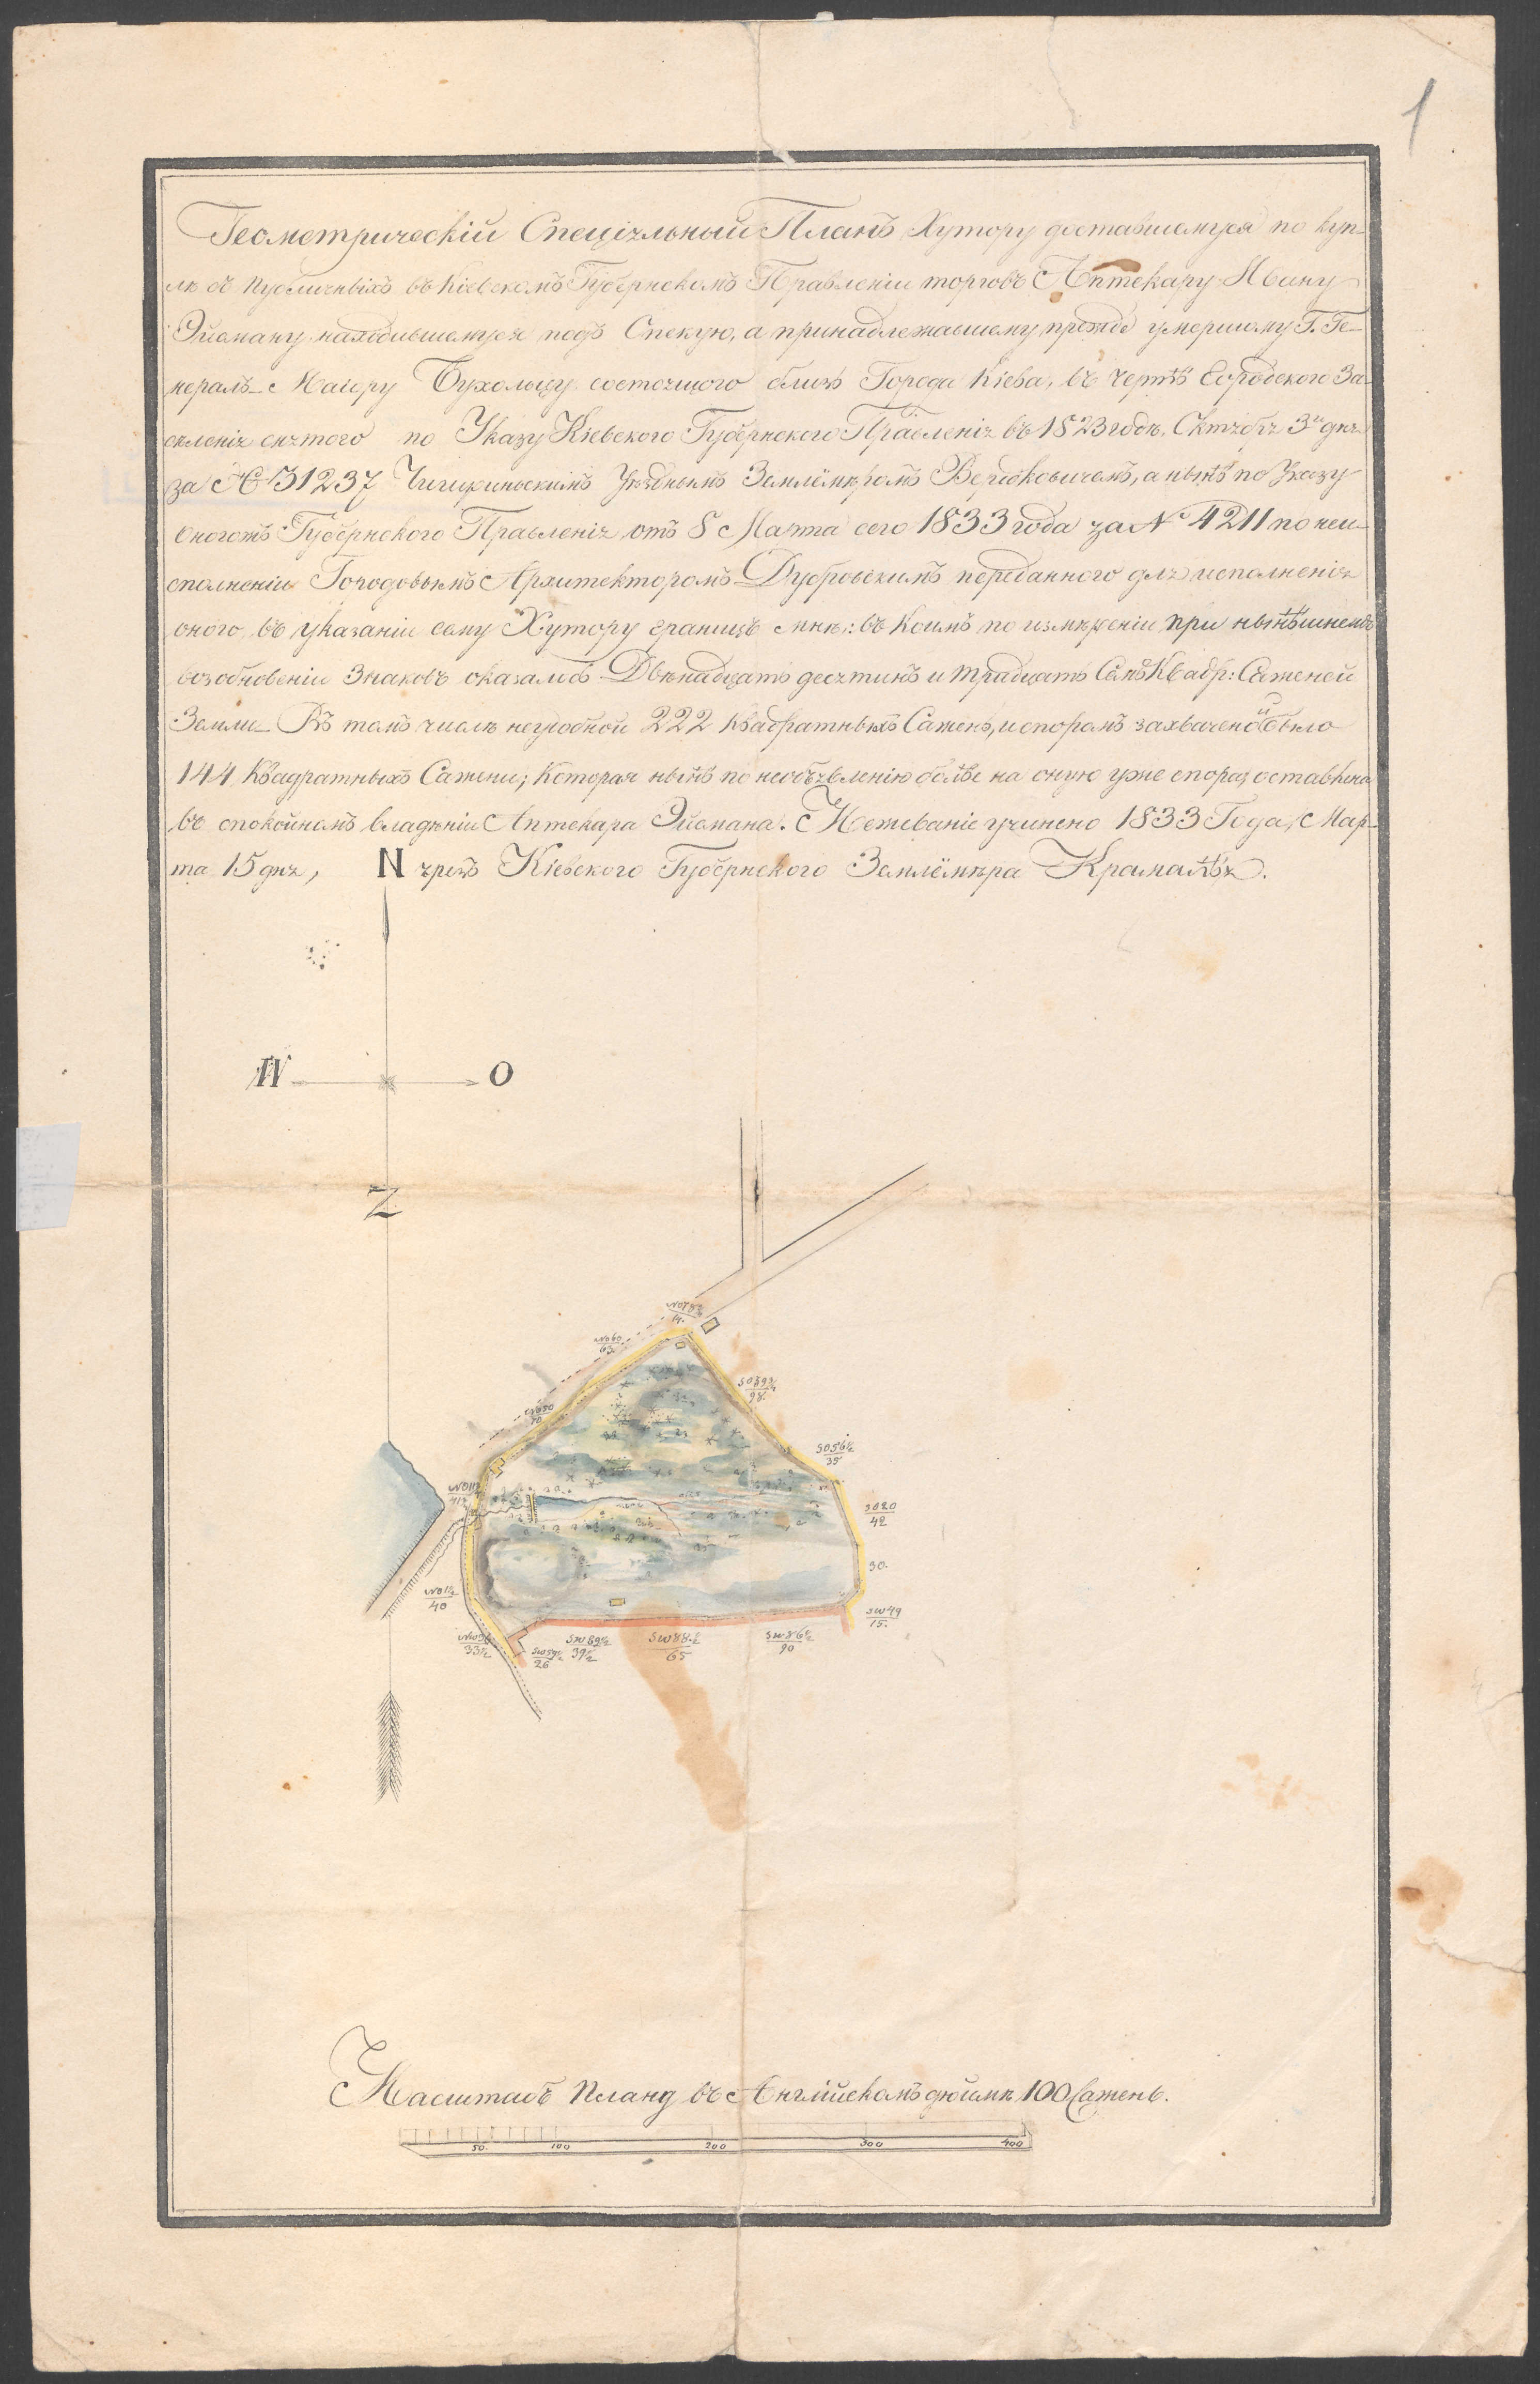 1
Геометрическій Спеціяльный Планъ Хутору доставшемуся по куп-
лѣ съ публичныхъ въ Кіевскомъ Губернскомъ Правленіи торговъ Аптекару Ивану
Эйсману находившемуся подъ Опекую, а принадлежавшему прежде умершому Г. Ге-
нералъ-Маіору Бухольцу состоящого близъ Города Кіева, въ чертѣ Городского За-
селенія снятого по Указу Кіевского Губернского Правленія въ 1823 годѣ, Октября 3го дня
за № 31237 Чигиринскимъ Уѣзднымъ Землемѣромъ, а нынѣ по Указу
оногожъ Губернского Правленія отъ 8 Марта сего 1833 года за № 4211 по неи-
сполненіи Городовымъ Архитекторомъ Дубровскимъ переданного для исполненія
оного, въ указаніи сему Хутору границъ мнѣ: въ коимъ по измѣреніи при нынѣшнемъ
возобновеніи Знаковъ оказалось Двѣнадцать десятинъ и тридцать Семь Квадр: Саженей
Земли Въ томъ числѣ неудобной 222 Квадратныхъ Сажень, и споромъ захваченой было
144 Квадратныхъ Сажени; Которая нынѣ по необъявленію болѣе на оную уже спора, оставлена
въ спокойномъ владѣніи Аптекара Эйсмана. Межеваніе учинено 1833 Года, Мар-
та 15 дня, N чрезъ Кіевского Губернского Землемѣра Крамалѣя.
W O
Z
14.
NO 60
63
NO 50
70
98.
SO 56½
35
SO 20
42
30.
SW 49
15.
40
33½
26
SW 89½
39½
SW 88½
65
SW 86½
90
Масштабъ Плану въ Англійскомъ дюймѣ 100 Сажень.
50. 100 200 300 400